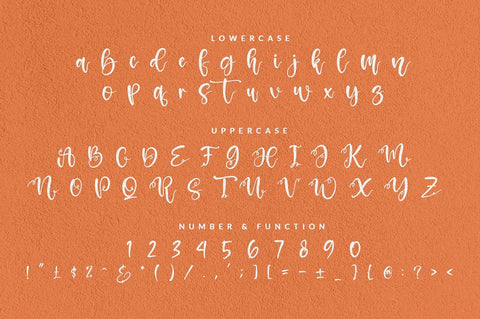 LOWERCASE
a b c d e f g h i j k l m n
o p q r s t u v w x y z
UPPERCASE
A B C D E F G H I J K L M
N O P Q R S T U V W X Y Z
NUMBER & FUNCTION
1 2 3 4 5 6 7 8 9 0
! " £ $ % ^ & * ( ) / . , ' ; ] [ = - ± _ } { @ : ? > <